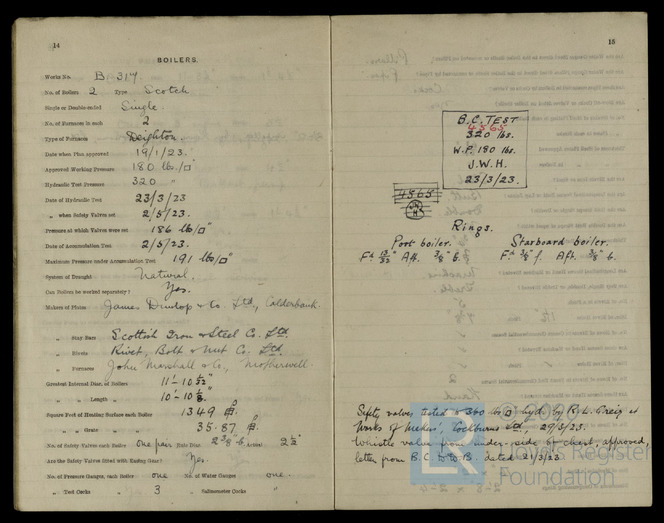 14
BOILERS.
Works No. B 317.
No. of Boilers 2 Type Scotch
Single or Double-ended Single.
No. of Furnaces in each 2
Type of Furnaces Deighton.
Date when Plan approved 19/1/23.
Approved Working Pressure 180 lb./□"
Hydraulic Test Pressure 320 "
Date of Hydraulic Test 23/3/23
" when Safety Valves set 2/5/23.
Pressure at which Valves were set 186 lb/□"
Date of Accumulation Test 2/5/23.
Maximum Pressure under Accumulation Test 191 lb/□"
System of Draught Natural.
Can Boilers be worked separately? Yes.
Makers of Plates James Dunlop & Co. Ltd., Calderbank.
" Stay Bars Scottish Iron & Steel Co. Ltd.
" Rivets Rivet, Bolt & Nut Co. Ltd.
" Furnaces John Marshall & Co., Motherwell.
Greatest Internal Diam. of Boilers 11'-10 5/32"
" " Length " 10'-10
Square Feet of Heating Surface each Boiler 1349
" " Grate " " 35.87
No. of Safety Valves each Boiler one pair Rule Diam. 2 3/8" Actual 2 1/2"
Are the Safety Valves fitted with Easing Gear? Yes.
No. of Pressure Gauges, each Boiler one No. of Water Gauges one.
" Test Cocks " 3 " Salinometer Cocks "
15
B.C. TEST
4565
320 lbs.
W.P. 180 lbs.
J.W.H.
23/3/23.
4565
Rings.
Port boiler. Starboard boiler.
Fd 13/32" Aft. 3/8" b. Fd 3/8" f. Aft. 3/8" b.
Safety valves tested to 360 lbs □" hyd. by R. L. Greig at
Works of Makers, Cockburns Ltd, 29/3/23.
Whistle valve from under-side of chest, approved,
letter from B.C. to B. dated 21/3/23.
© 20
LR
Lloyd's Register
Foundation